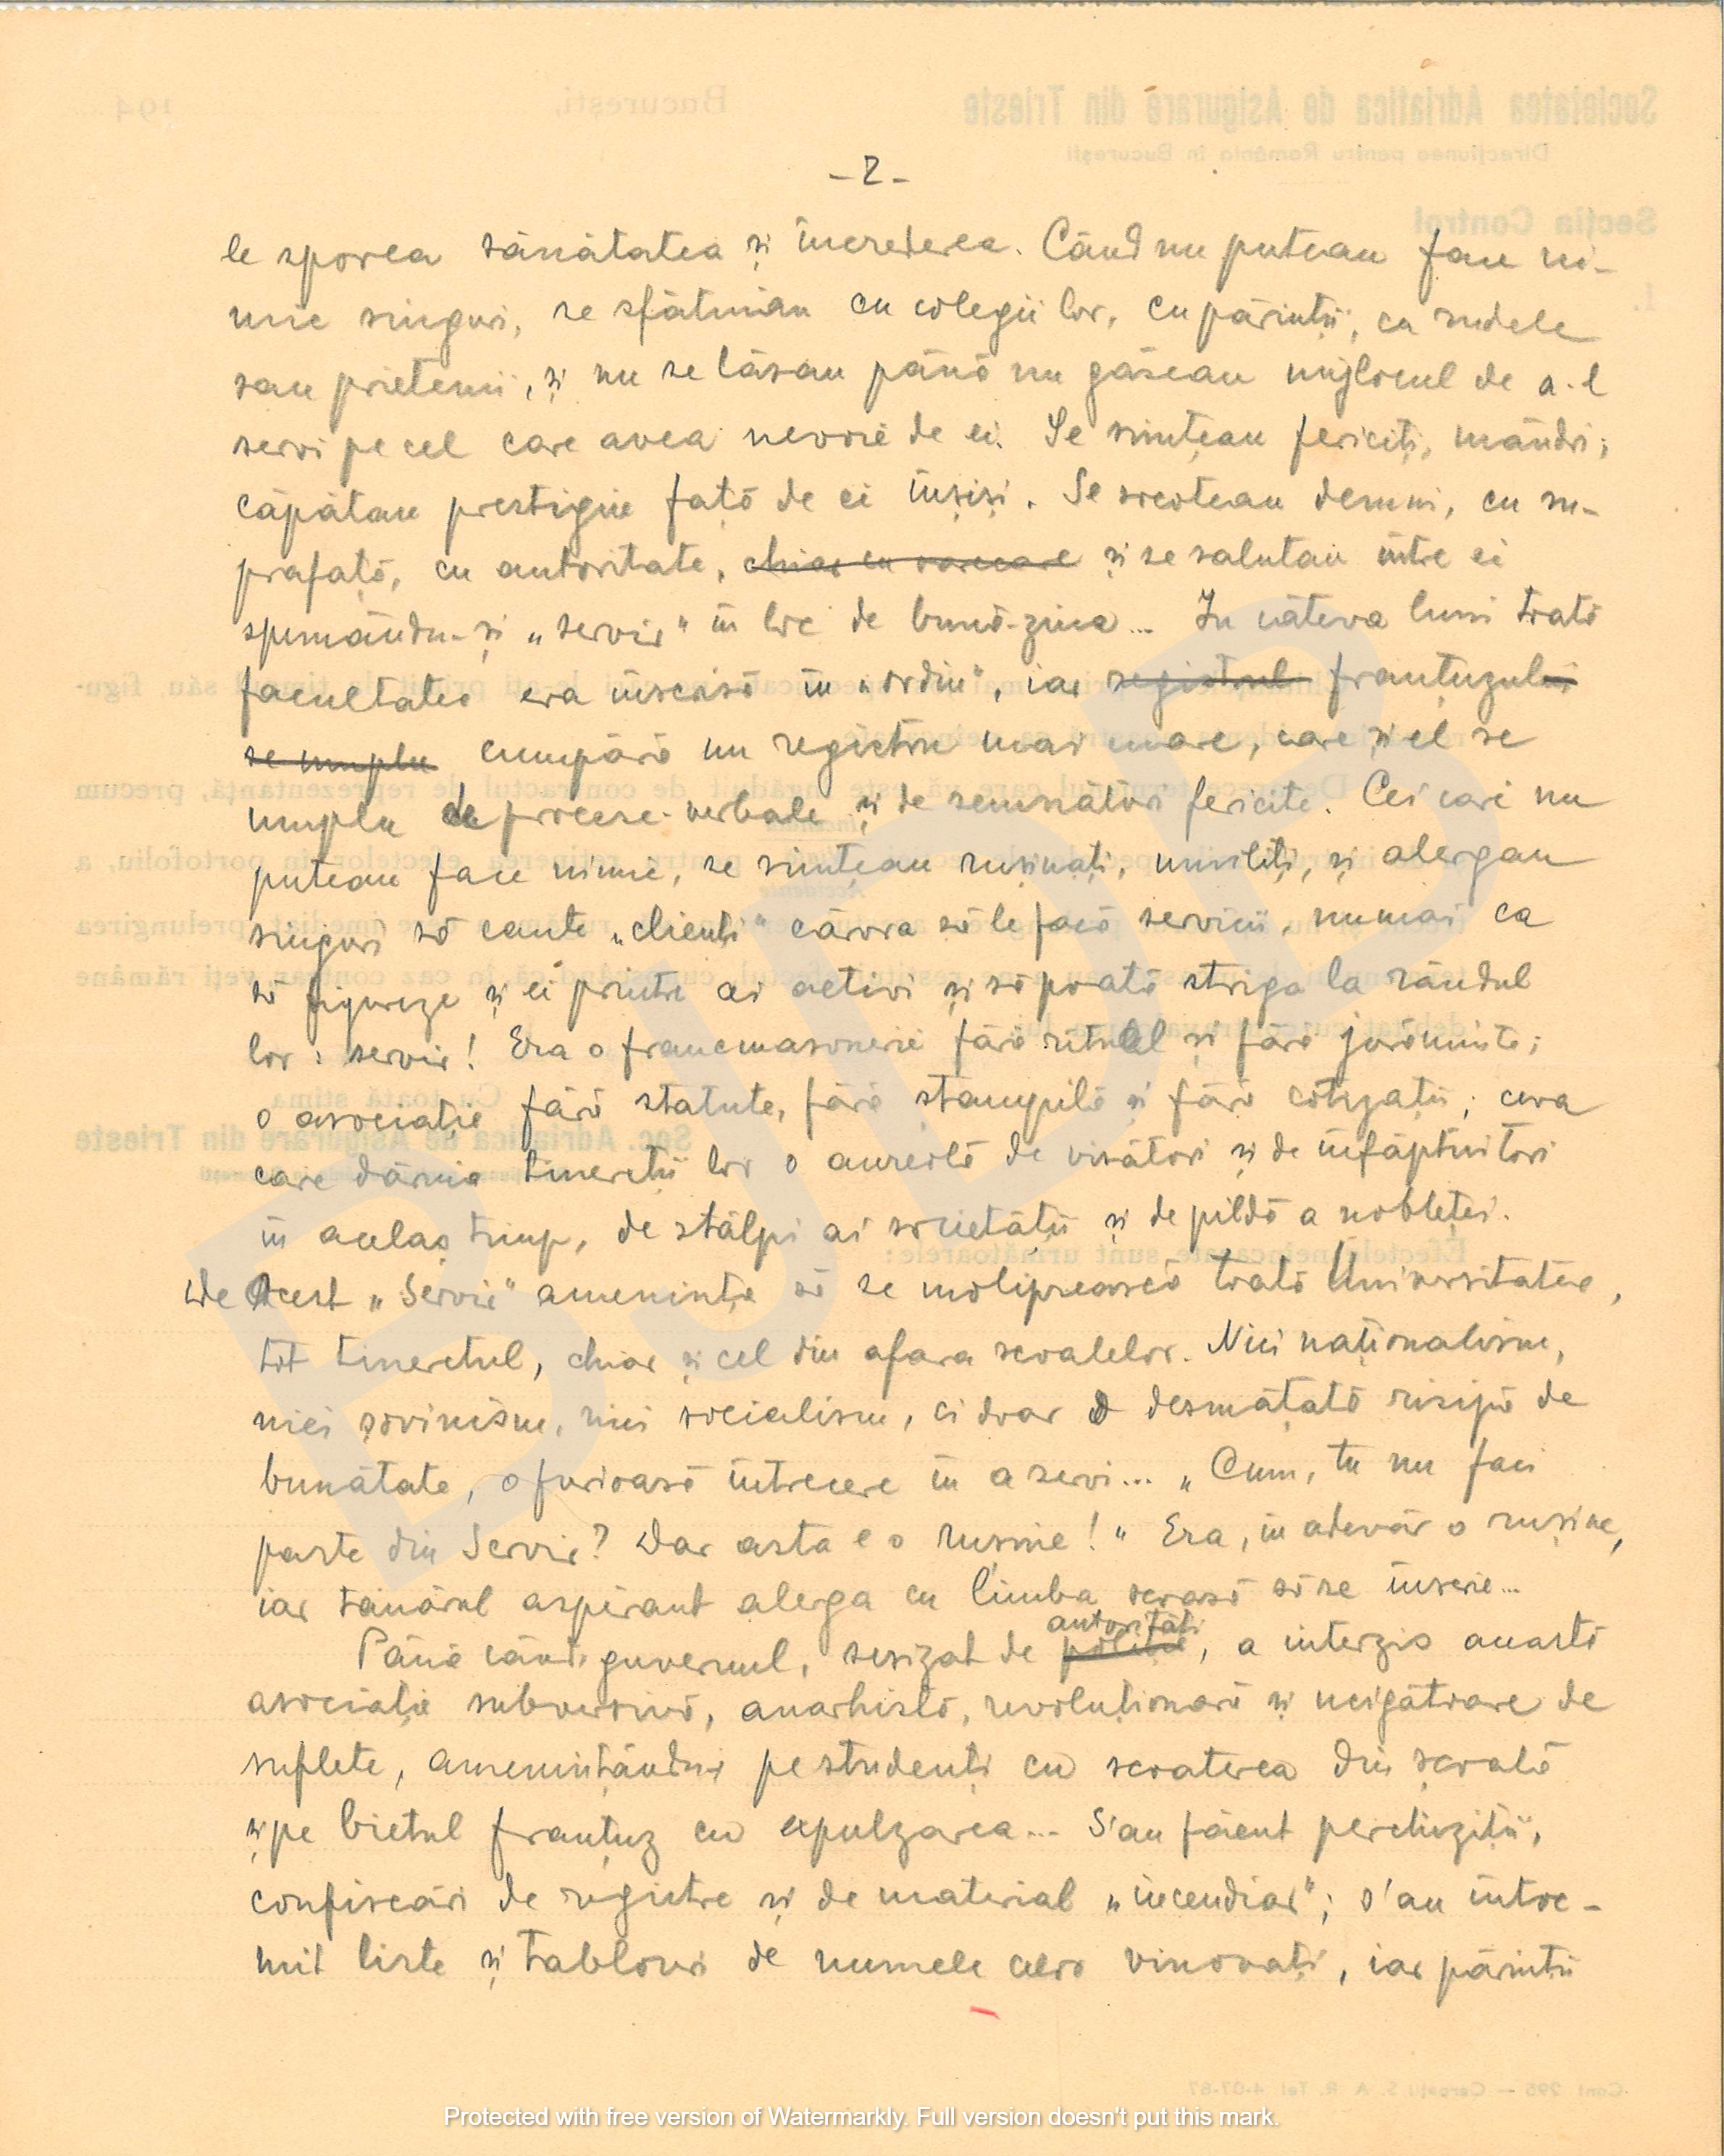 - 2 -
le sporea sănătatea și încrederea. Când nu puteau face ni-
mic singuri, se sfătuiau cu colegii lor, cu părinții, cu rudele
sau prietenii, și nu se lăsau până nu găseau mijlocul de a-l
servi pe cel care avea nevoie de ei. Se simțeau fericiți, mândri;
căpătau prestigiu față de ei înșiși. Se socoteau demni, cu su-
prafață, cu autoritate, chiar cu oarecare și se salutau între ei
spunându-și „servir" în loc de bună-ziua... In câteva luni toată
facultatea era înscrisă în „ordin", iar registrul franțuzului
se umplu cumpără un registru mai mare, care și el se
umplu de procese-verbale și de semnături fericite. Cei cari nu
puteau face nimic, se simțeau rușinați, umiliți, și alergau
singuri să caute „clienți" cărora să le facă servicii, numai ca
să figureze și ei printre ai activi și să poată striga la rândul
lor: servir! Era o francmasonerie fără ritual și fără jurăminte;
o asociație fără statute, fără stampilă și fără cotizații; ceva
care dăruia tinereții lor o aureolă de visători și de înfăptuitori
în acelaș timp, de stâlpi ai societății și de pildă a nobleței.
De Acest „Servir" amenința să se molipsească toată Universitatea,
tot tineretul, chiar și cel din afara școalelor. Nici naționalism,
nici șovinism, nici socialism, ci doar o desmățată risipă de
bunătate, o furioasă întrecere în a servi... „Cum, tu nu faci
parte din Servir? Dar asta e o rușine!" Era, în adevăr o rușine,
iar tânărul aspirant alerga cu limba scoasă să se înscrie...
autorități
Până când guvernul, sesizat de poliție, a interzis această
asociație subversivă, anarhistă, revoluționară și ucigătoare de
suflete, amenințându-i pe studenți cu scoaterea din școală
și pe bietul franțuz cu expulzarea... S'au făcut perchiziții,
confiscări de registre și de material „incendiar"; s'au întoc-
mit liste și tablouri de numele celor vinovați, iar părinții
Protected with free version of Watermarkly. Full version doesn't put this mark.